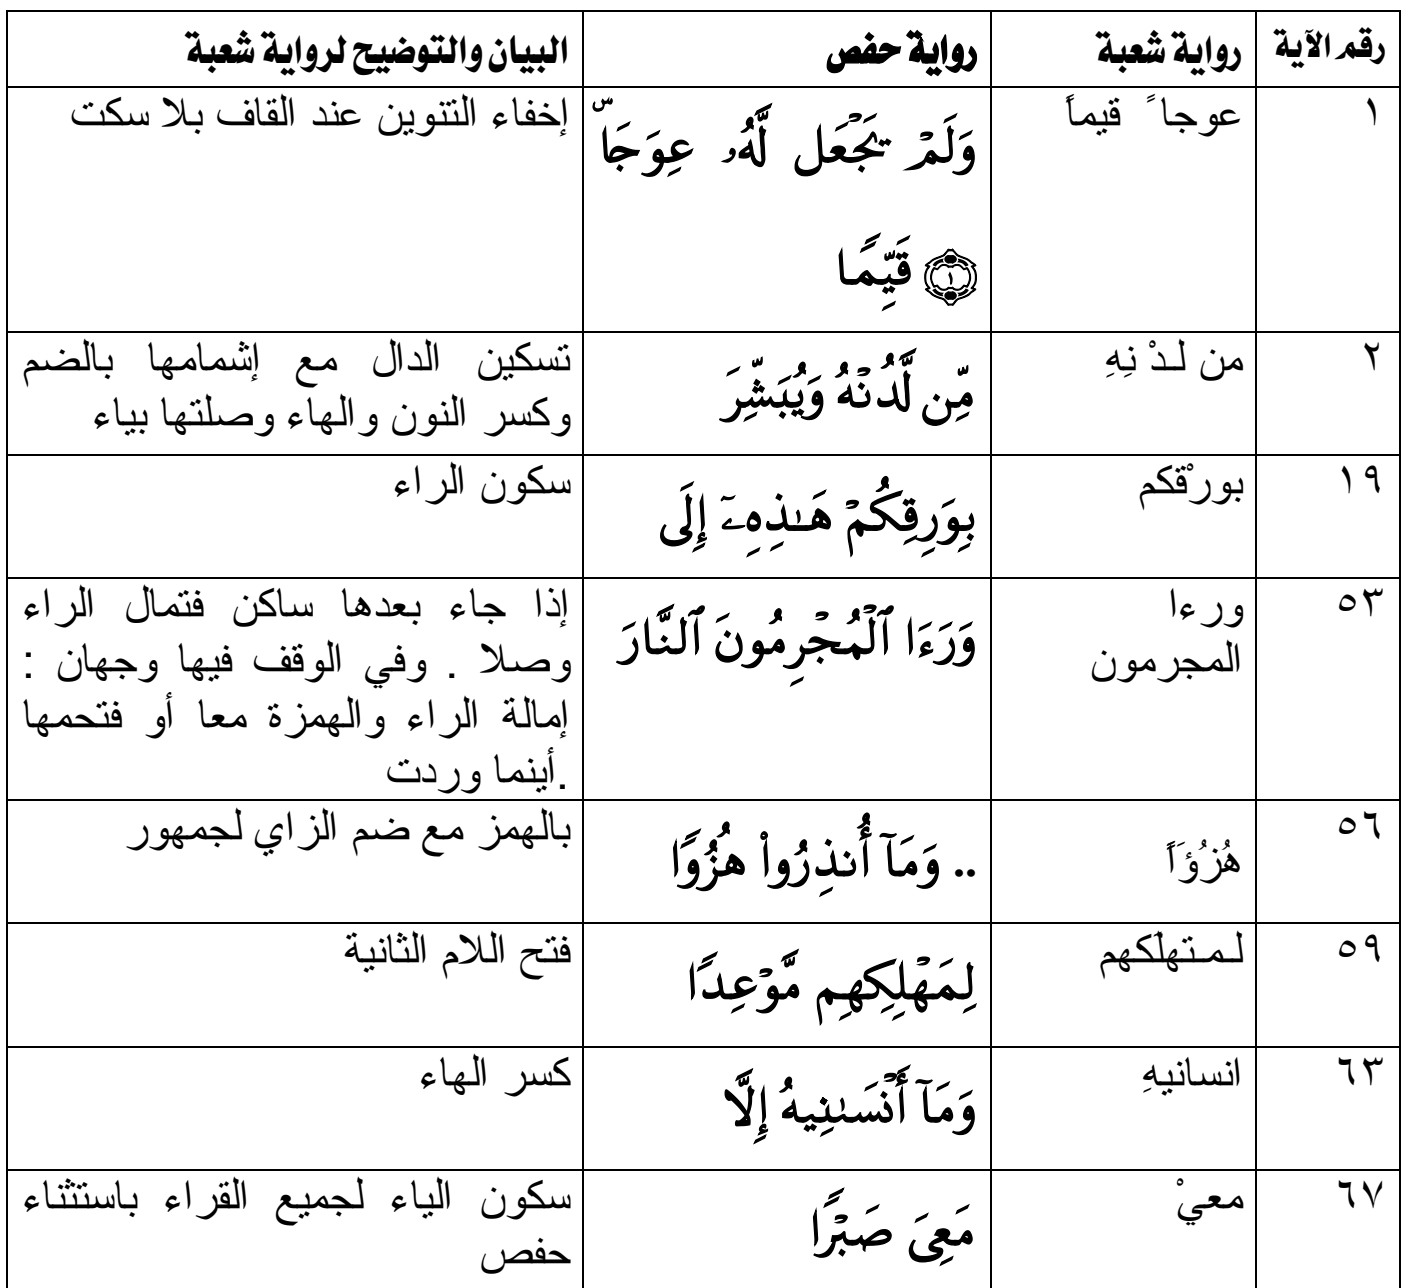 رقم الآية رواية شعبة رواية حفص البيان والتوضيح لرواية شعبة
١ عوجا ً قيماً وَلَمۡ يَجۡعَل لَّهُۥ عِوَجَاۜ إخفاء التنوين عند القاف بلا سكت
١ قَيِّمًا
٢ من لـدْ نِهِ مِّن لَّدُنۡهُ وَيُبَشِّرَ تسكين الدال مع إشمامها بالضم
وكسر النون والهاء وصلتها بياء
١٩ بورْقكم بِوَرِقِكُمۡ هَـٰذِهِۦٓ إِلَى سكون الراء
٥٣ ورءا وَرَءَا ٱلۡمُجۡرِمُونَ ٱلنَّارَ إذا جاء بعدها ساكن فتمال الراء
المجرمون وصلا . وفي الوقف فيها وجهان :
إمالة الراء والهمزة معا أو فتحمها
.أينما وردت
٥٦ هُزُؤَاً .. وَمَآ أُنذِرُواْ هُزُوًا بالهمز مع ضم الزاي لجمهور
٥٩ لـمـتهلَكهم لِمَهۡلِكِهِم مَّوۡعِدًا فتح اللام الثانية
٦٣ انسانيهِ وَمَآ أَنۡسَىٰنِيهُ إِلَّا كسر الهاء
٦٧ معيْ مَعِىَ صَبۡرًا سكون الياء لجميع القراء باستثناء
حفص